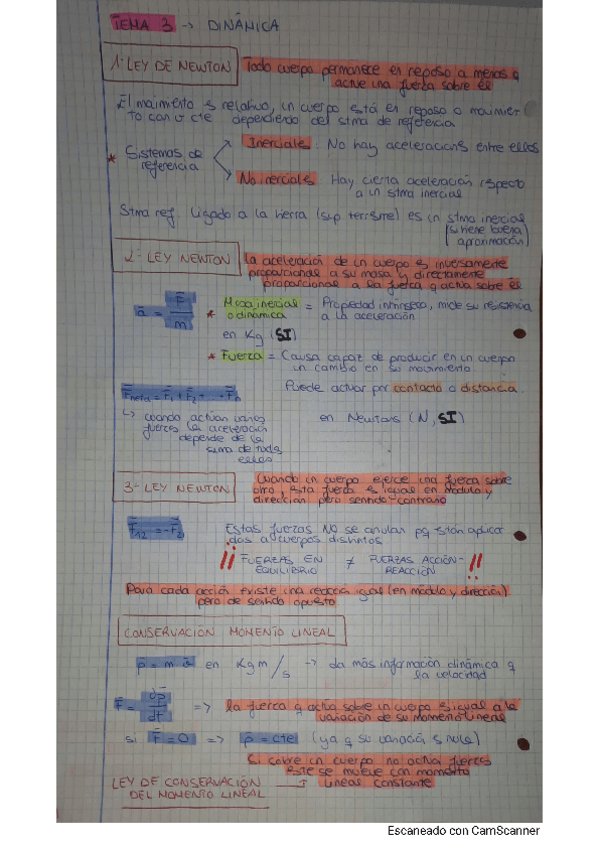 TEMA 3 → DINÁMICA
1ª LEY DE NEWTON
Todo cuerpo permanece en reposo a menos q
actúe una fuerza sobre él
El movimiento es relativo, un cuerpo está en reposo o movimien-
to con v cte dependiendo del stma de referencia
* Sistemas de
referencia
Inerciales: No hay aceleracions entre ellos
No inerciales Hay cierta aceleración respecto
a un sitma inercial
Stma ref. ligado a la tierra (sup terrstre) es un stma inercial
(si tiene buena
aproximación)
2ª LEY NEWTON
La aceleración de un cuerpo es inversamente
proporcional a su masa y directamente
proporcional a la fuerza q actúa sobre él
a = F/m
* Masa inercial = Propiedad intrínseca, mide su resistencia
o dinámica a la aceleración
en Kg (SI)
* Fuerza = Causa capaz de producir en un cuerpo
un cambio en su movimiento
Puede actuar por contacto o distancia.
Fneta = F1 + F2 + ... + Fn
↳ cuando actúan varias
fuerzas la aceleración
depende de la
suma de todas
ellas
en Newtons (N, SI)
3ª LEY NEWTON
Cuando un cuerpo ejerce una fuerza sobre
otro, esta fuerza es igual en módulo y
dirección pero sentido contrario
F12 = -F21
Estas fuerzas NO se anulan pq están aplica-
das a cuerpos distintos
¡¡ FUERZAS EN ≠ FUERZAS ACCIÓN- !!
EQUILIBRIO REACCIÓN
Para cada acción existe una reacción igual (en módulo y dirección)
pero de sentido opuesto
CONSERVACIÓN MOMENTO LINEAL
p = m v en Kg m/s → da más información dinámica q
la velocidad
F = dp/dt => la fuerza q actúa sobre un cuerpo es igual a la
variación de su momento lineal
si F = 0 => p = cte (ya q su variació s nula)
Si sobre un cuerpo no actúa fuerzas
este se mueve con momento
LEY DE CONSERVACIÓN → lineas constante
DEL MOMENTO LINEAL
Escaneado con CamScanner